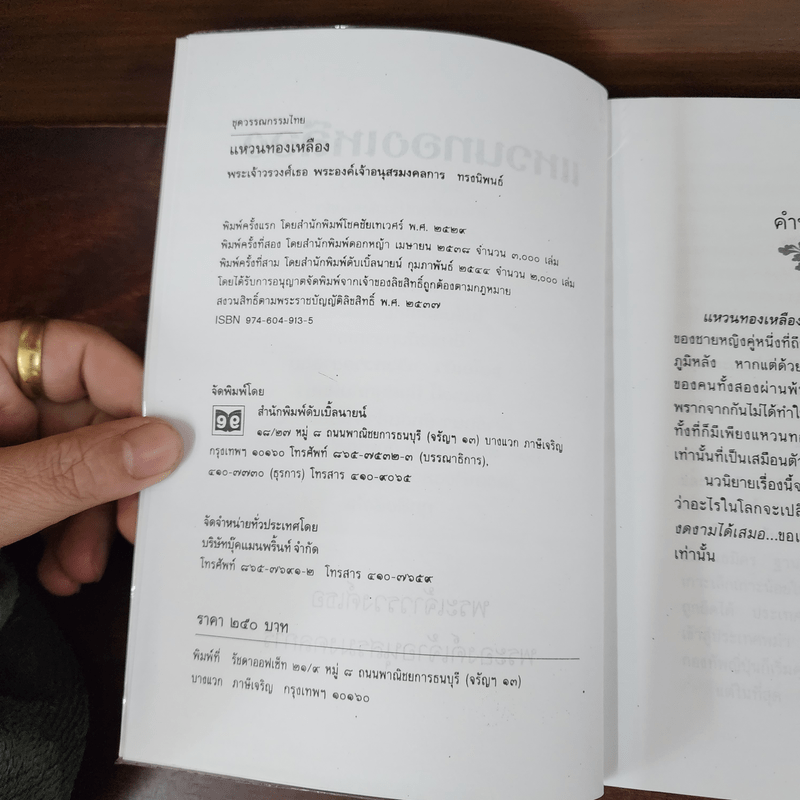 ชุดวรรณกรรมไทย
แหวนทองเหลือง
พระเจ้าวรวงศ์เธอ พระองค์เจ้าอนุสรมงคลการ ทรงนิพนธ์
พิมพ์ครั้งแรก โดยสำนักพิมพ์โชคชัยเทเวศร์ พ.ศ. ๒๕๒๙
พิมพ์ครั้งที่สอง โดยสำนักพิมพ์ดอกหญ้า เมษายน ๒๕๓๘ จำนวน ๓,๐๐๐ เล่ม
พิมพ์ครั้งที่สาม โดยสำนักพิมพ์ดับเบิ้ลนายน์ กุมภาพันธ์ ๒๕๔๔ จำนวน ๒,๐๐๐ เล่ม
โดยได้รับการอนุญาตจัดพิมพ์จากเจ้าของลิขสิทธิ์ถูกต้องตามกฎหมาย
สงวนสิทธิ์ตามพระราชบัญญัติลิขสิทธิ์ พ.ศ. ๒๕๓๗
ISBN 974-604-913-5
จัดพิมพ์โดย
สำนักพิมพ์ดับเบิ้ลนายน์
๑๘/๒๗ หมู่ ๘ ถนนพาณิชยการธนบุรี (จรัญฯ ๑๓) บางแวก ภาษีเจริญ
กรุงเทพฯ ๑๐๑๖๐ โทรศัพท์ ๘๖๕-๗๕๓๒-๓ (บรรณาธิการ),
๔๑๐-๗๗๓๐ (ธุรการ) โทรสาร ๔๑๐-๙๐๖๕
จัดจำหน่ายทั่วประเทศโดย
บริษัทบุ๊คแมนพริ้นท์ จำกัด
โทรศัพท์ ๘๖๕-๗๖๙๑-๒ โทรสาร ๔๑๐-๗๖๕๙
ราคา ๒๕๐ บาท
พิมพ์ที่ รัชดาออฟเซ็ท ๒๑/๙ หมู่ ๘ ถนนพาณิชยการธนบุรี (จรัญฯ ๑๓)
บางแวก ภาษีเจริญ กรุงเทพฯ ๑๐๑๖๐
แหวนทองเหลือง
ของชายหญิงคู่หนึ่งที่
ภูมิหลัง หากแต่ด้วย
ของคนทั้งสองผ่าน
พรากจากกันไม่ได้ทำ
ทั้งที่ก็มีเพียงแหวน
เท่านั้นที่เป็นเสมือน
นวนิยายเรื่องนี้
ว่าอะไรในโลกจะ
งดงามได้เสมอ...
เท่านั้น